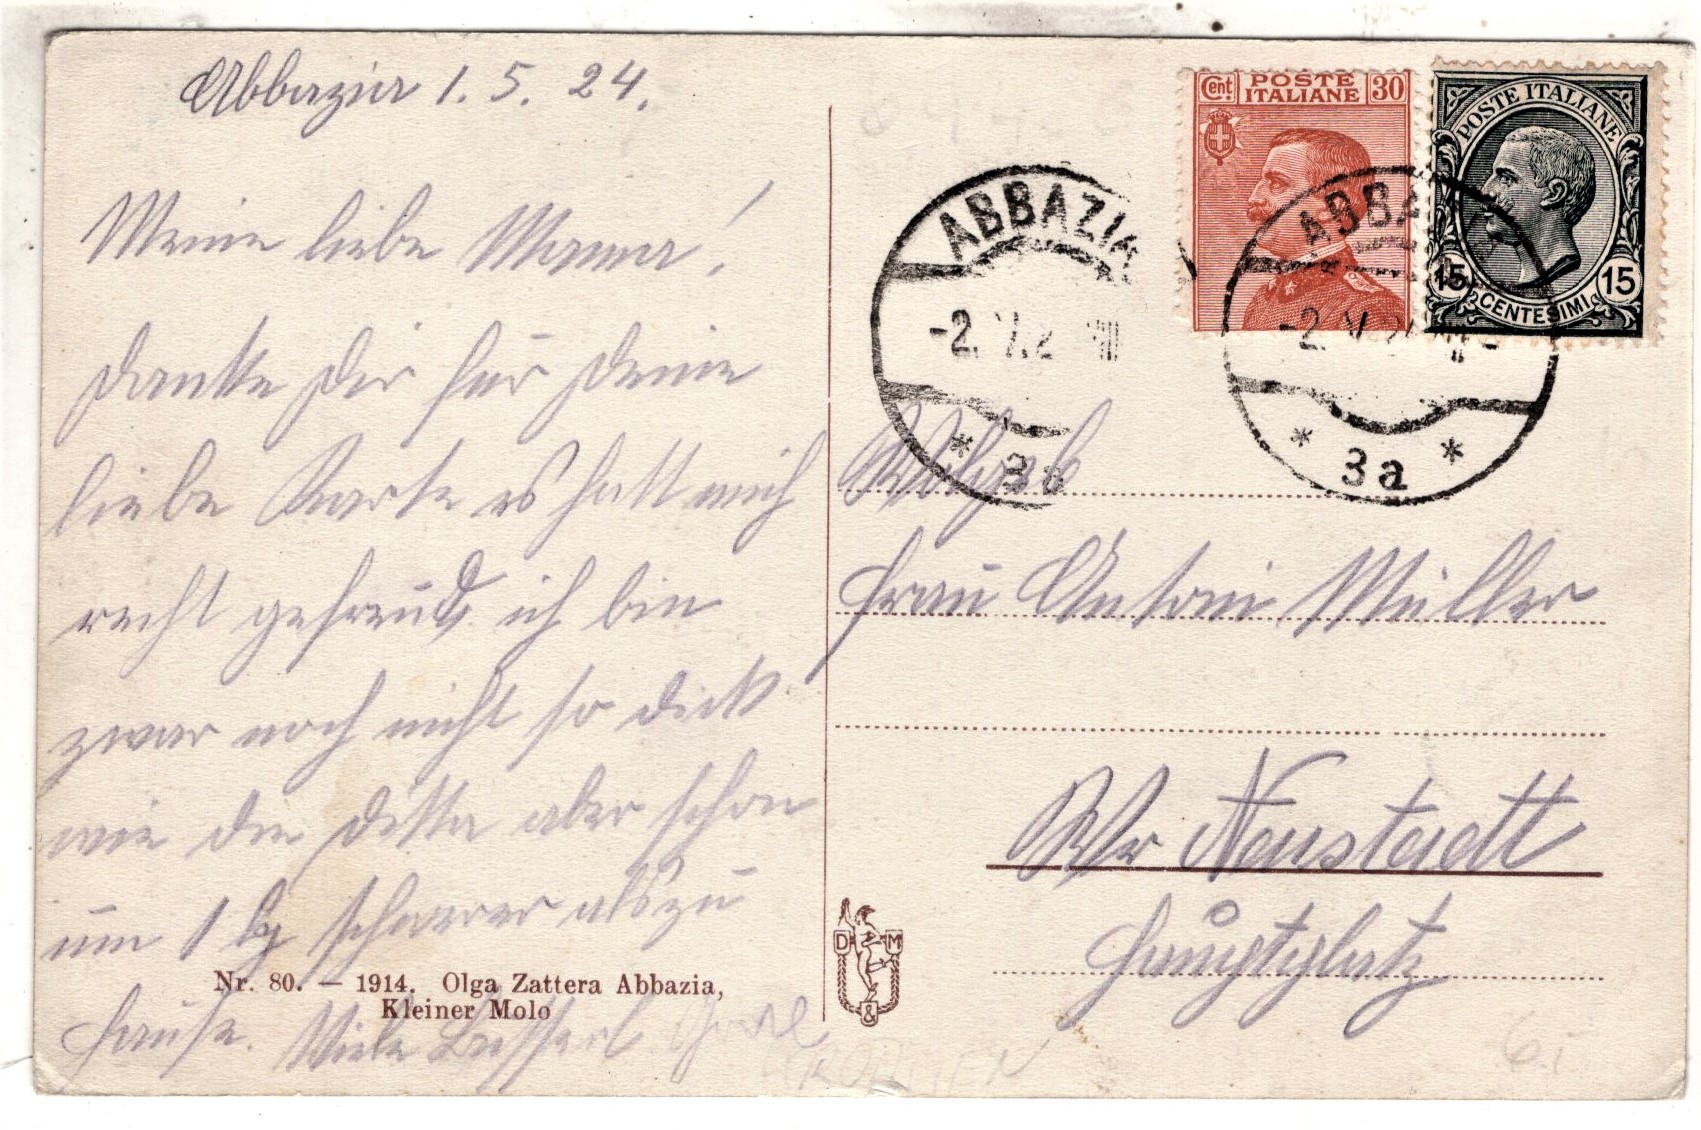 Abbazia 1. 5. 24.
Meine liebe Mama!
danke dir für deine
liebe Karte es hatt mich
recht gefreud. ich bin
zwar noch nicht so dick
wie die aber schon
um 1 kg schwerer als zu
Hause. Viele Busserl
Nr. 80. — 1914. Olga Zattera Abbazia,
Kleiner Molo
D M
&
Cent. POSTE ITALIANE 30
POSTE ITALIANE
15 CENTESIMI 15
ABBAZIA
-2. V. 2
* 3a
ABBAZIA
-2. V. 2
* 3a *
Wohlgeb
Frau Antoni Müller
Wr Neustadt
Hauptplatz